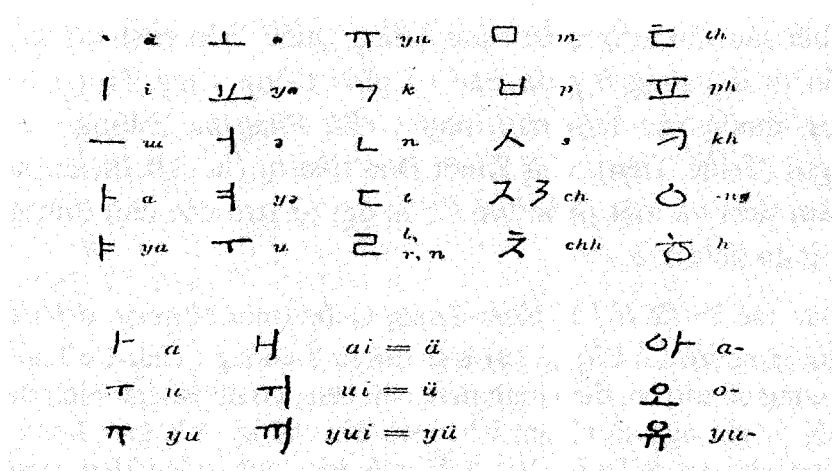 ㆍ ă ㅗ o ㅠ yu ㅁ m ㅌ th
ㅣ i ㅛ yo ㄱ k ㅂ p ㅍ ph
ㅡ ɯ ㅓ ə ㄴ n ㅅ s ㅋ kh
ㅏ a ㅕ yə ㄷ t ㅈ ㅈ ch ㆁ -ng
ㅑ ya ㅜ u ㄹ l, r, n ㅊ chh ㅎ h
ㅏ a ㅐ ai = ä 아 a-
ㅜ u ㅟ ui = ü 오 o-
ㅠ yu ㆌ yui = yü 유 yu-